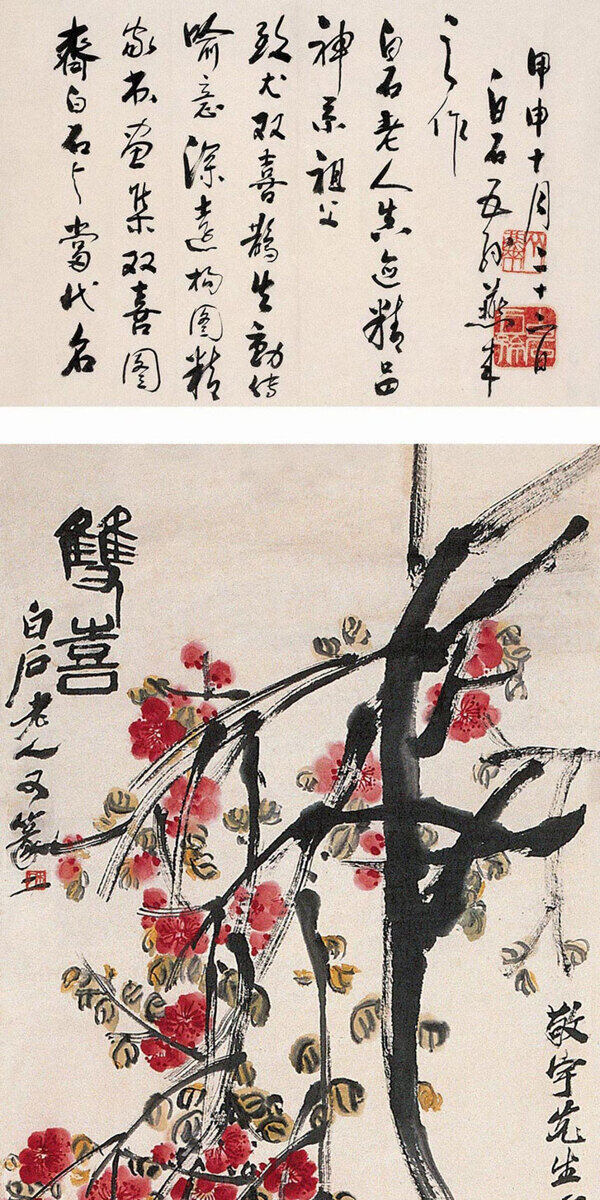 齊白石与當代名
家书画集双喜图
喻意深遠构图精
致尤双喜鹊生動传
神系祖父
白石老人真迹精品
之作
白石五孙燕来
甲申十月二十六日
雙喜
白石老人又篆
敬宇先生